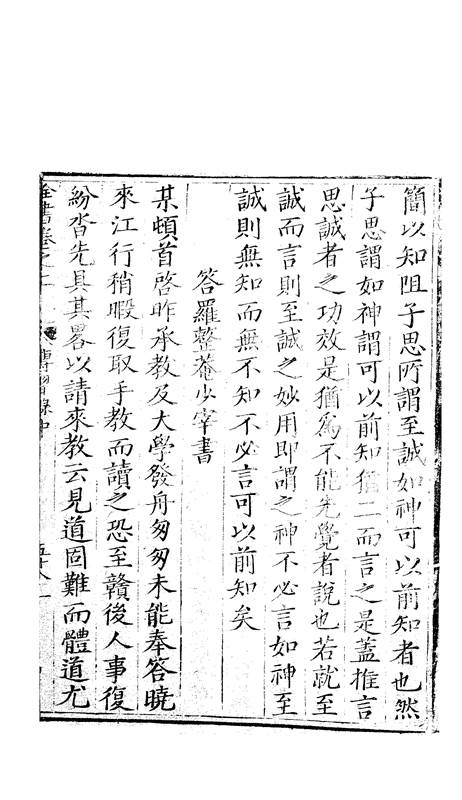 簡以知阻子思所謂至誠如神可以前知者也然
子思謂如神謂可以前知猶二而言之是蓋推言
思誠者之功效是猶爲不能先覺者說也若就至
誠而言則至誠之妙用即謂之神不必言如神至
誠則無知而無不知不必言可以前知矣
答羅整菴少宰書
某頓首啓昨承教及大學發舟匆匆未能奉答曉
來江行稍暇復取手教而讀之恐至贛後人事復
紛沓先具其畧以請來教云見道固難而體道尤
全書卷之二
傳習錄中